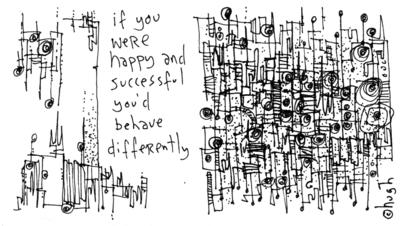 if you
were
happy and
successful
you'd
behave
differently
@hugh